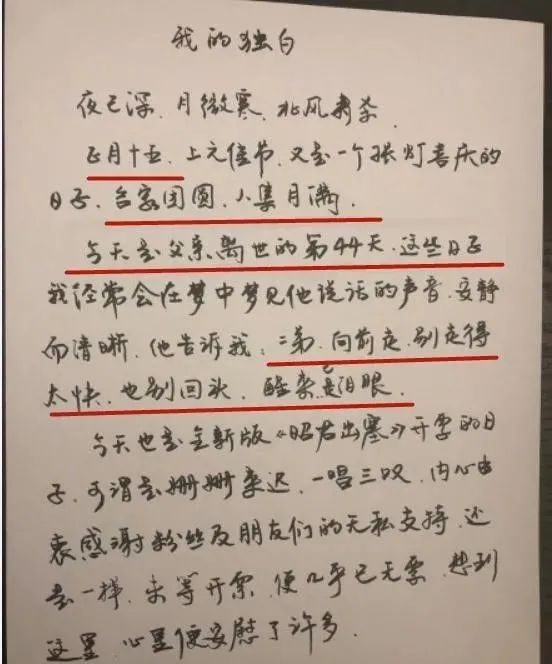 我的独白
夜已深,月微寒,北风肃杀,
正月十五,上元佳节,又是一个张灯喜庆的
日子,合家团圆,人集月满,
今天是父亲离世的第44天,这些日子
我经常会在梦中梦见他说话的声音,安静
而清晰,他告诉我:二弟,向前走,别走得
太快,也别回头,醒来已是泪眼,
今天也是全新版《昭君出塞》开票的日
子,可谓是姗姗来迟,一唱三叹,内心由
衷感谢粉丝及朋友们的无私支持,还
是一样,未等开票,便几乎已无票,想到
这里,心里便安慰了许多.